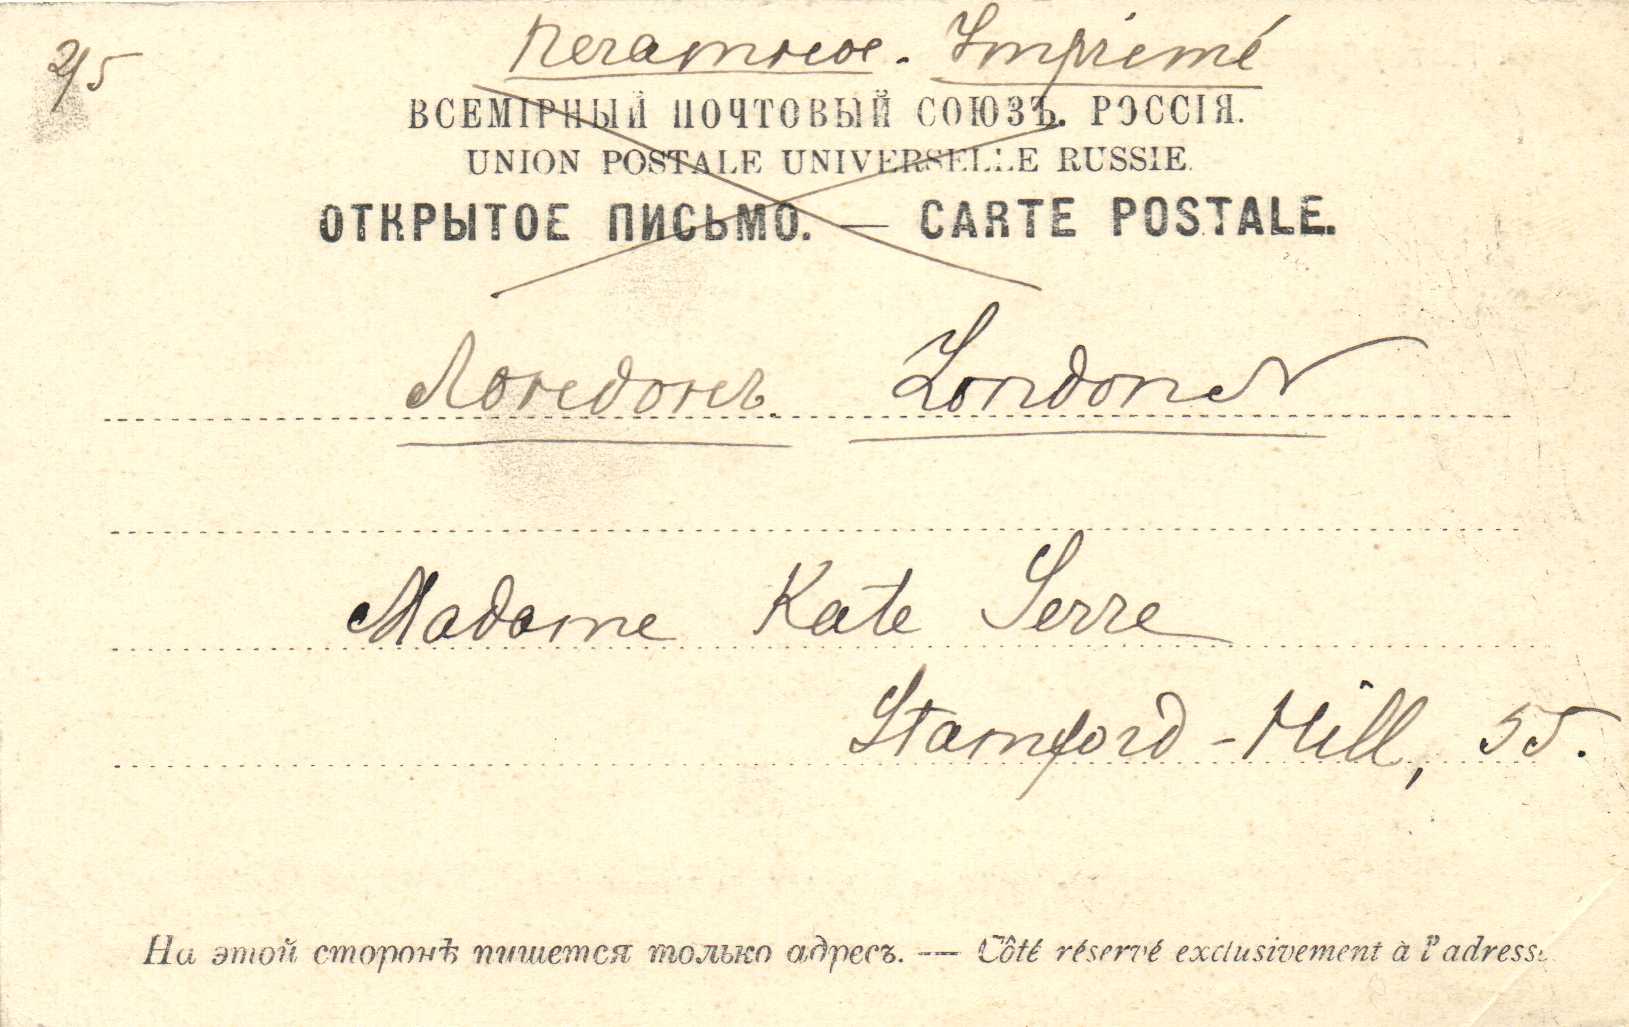 2/5
Печатное. Imprimé
ВСЕМІРНЫЙ ПОЧТОВЫЙ СОЮЗЪ. РОССІЯ.
UNION POSTALE UNIVERSELLE RUSSIE.
ОТКРЫТОЕ ПИСЬМО. — CARTE POSTALE.
Лондонъ. London N
Madame Kate Serre
Stamford-Hill, 55.
На этой сторонѣ пишется только адресъ. — Côté réservé exclusivement à l'adresse